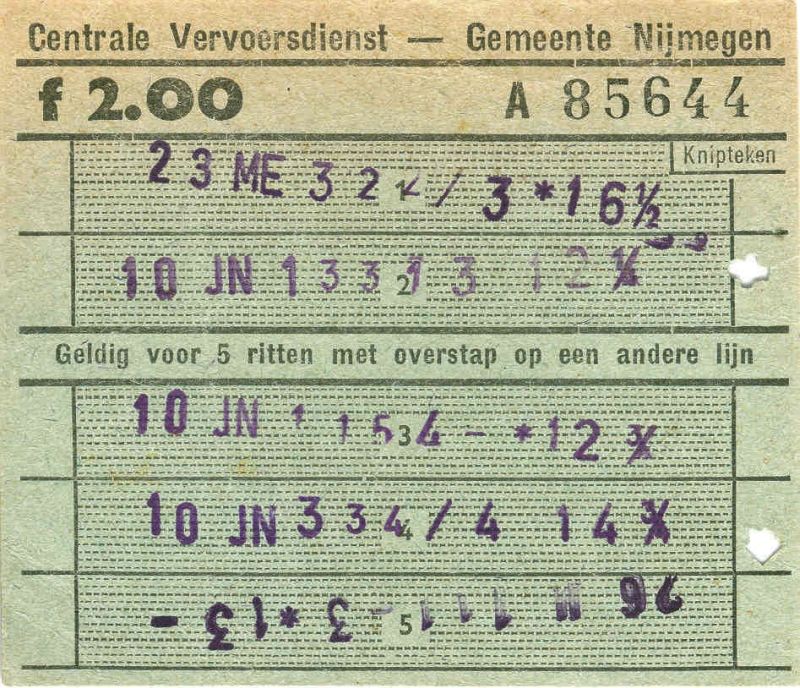 Centrale Vervoersdienst — Gemeente Nijmegen
f 2.00 A 85644
Knipteken
23 ME 32 1 / 3 *16½
10 JN 133 2 13 12
Geldig voor 5 ritten met overstap op een andere lijn
10 JN 1 15 3 4 - *12 ¾
10 JN 334 4 / 4 14 ¾
5